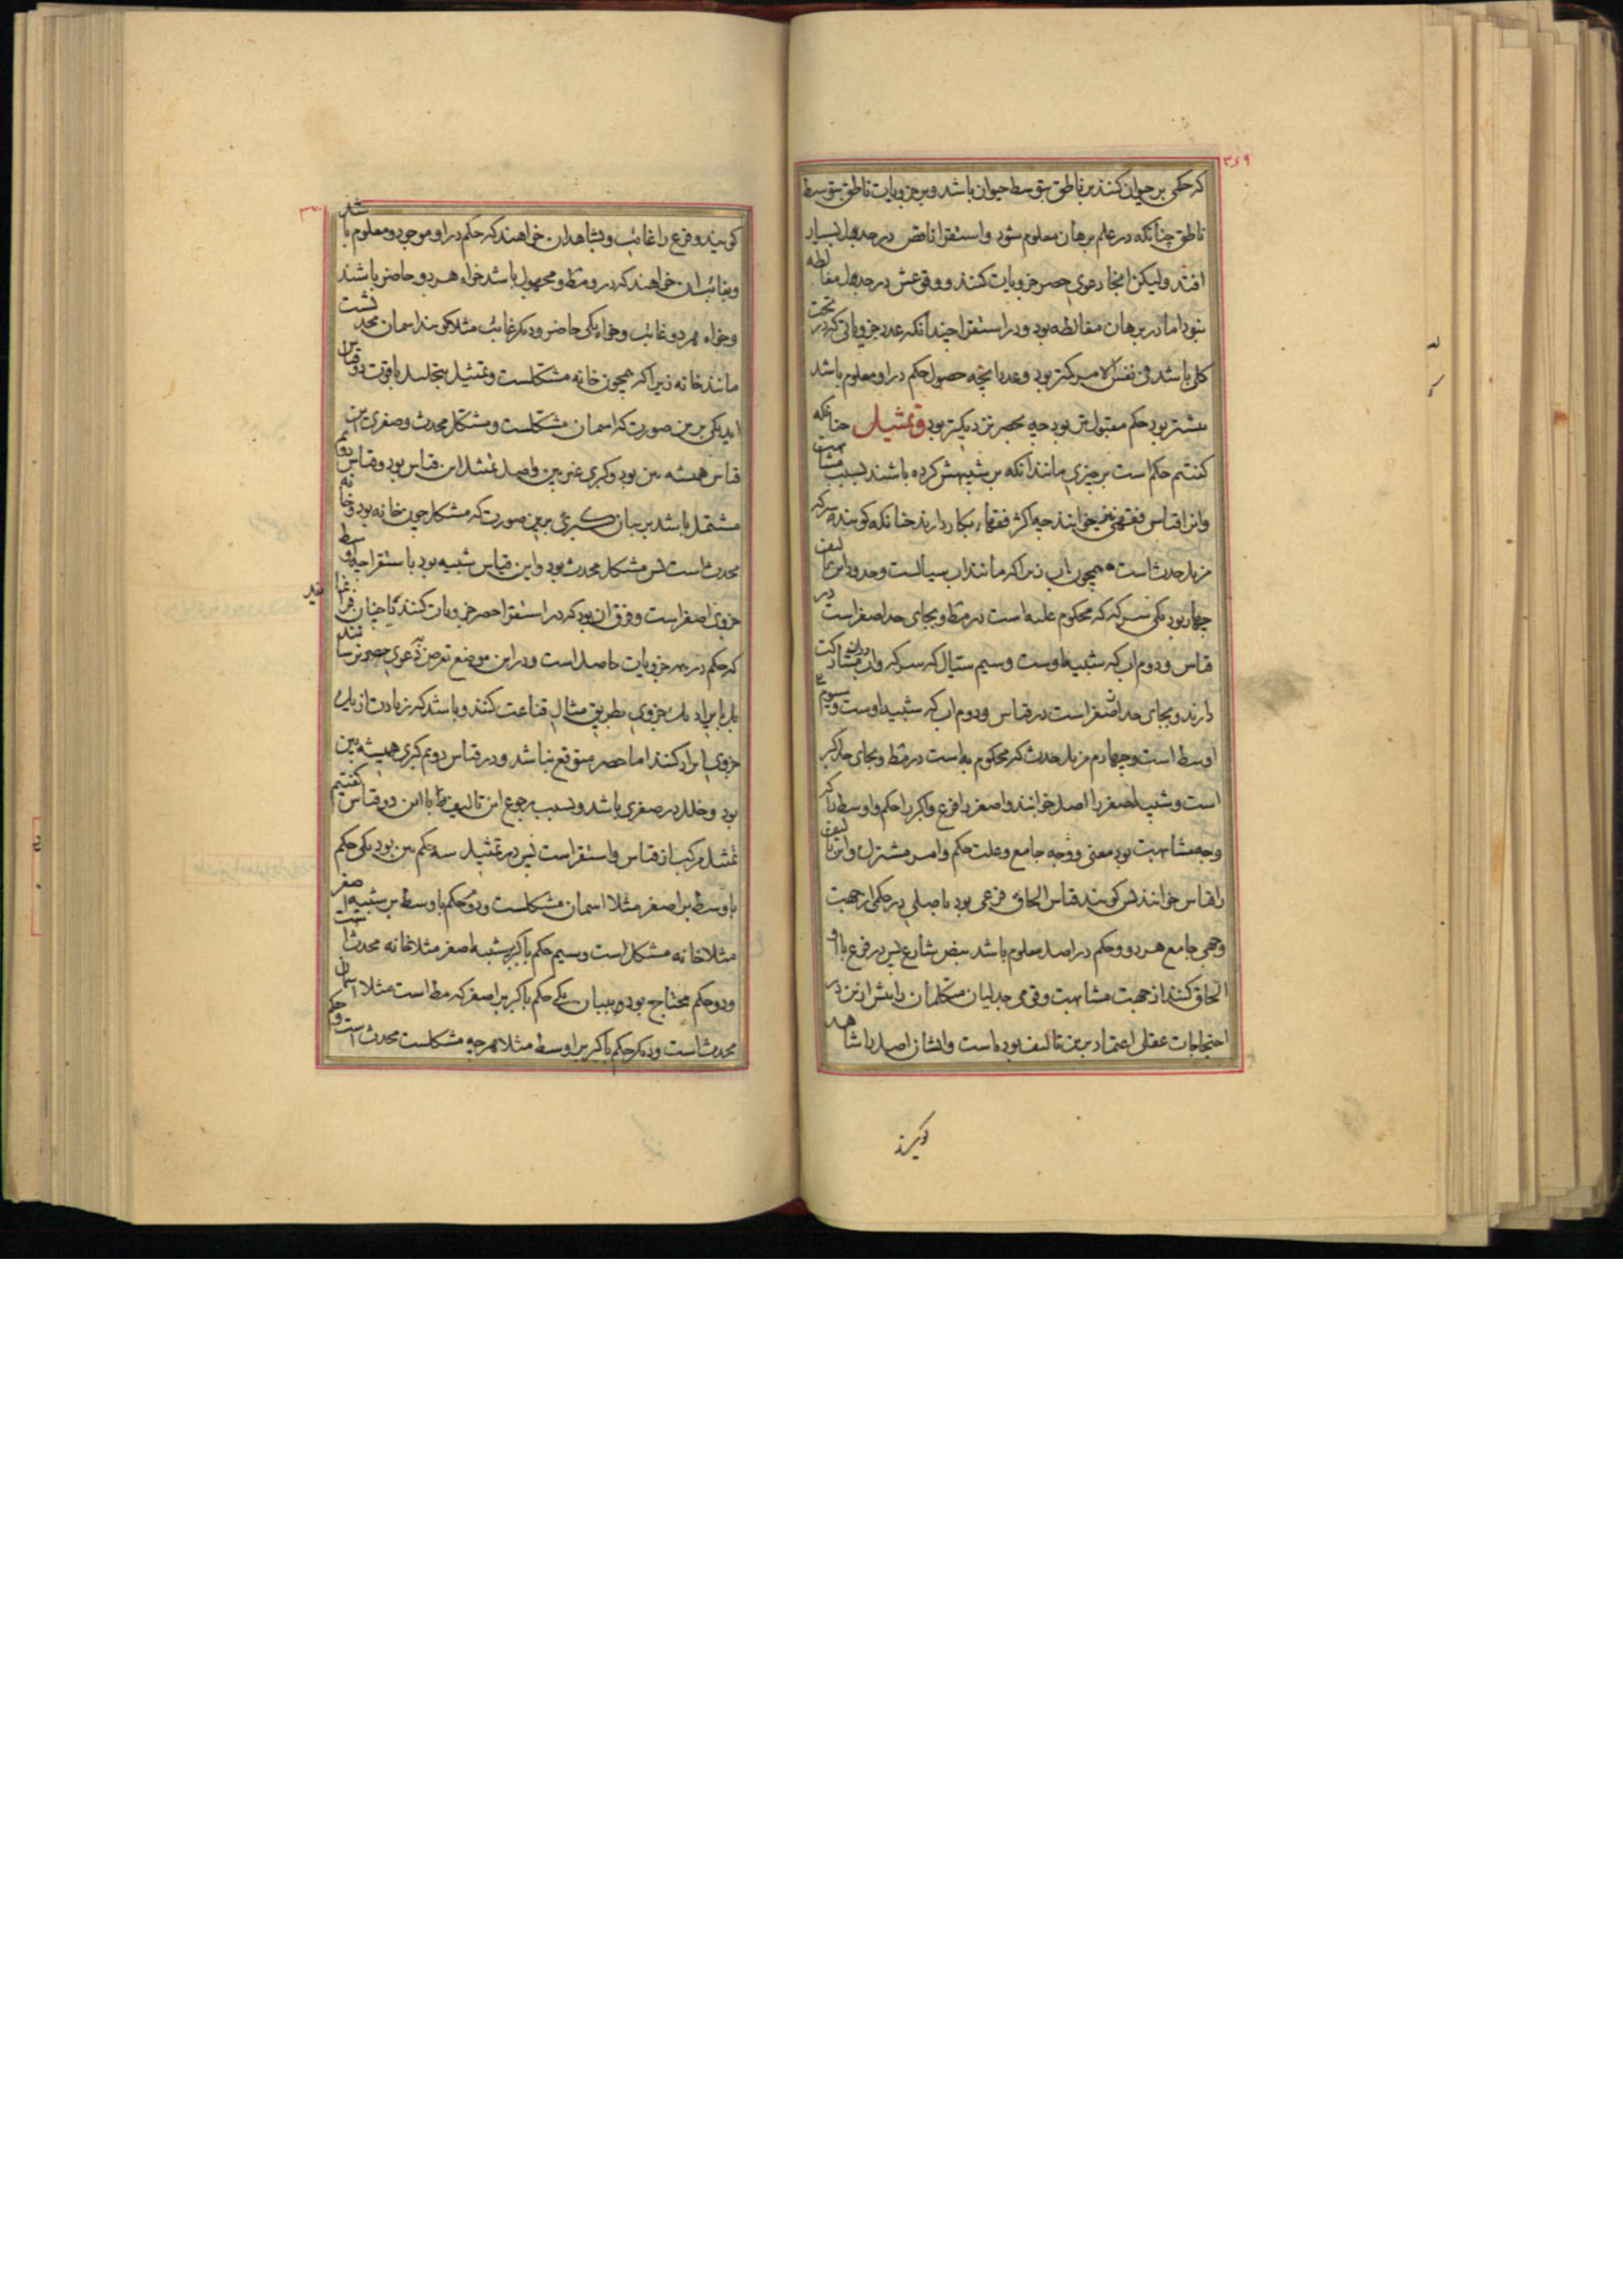 ۳۶۹
که حکمی بر حیوان کنند بر ناطق بتوسط حیوان باشد و بر جزویات ناطق بتوسط
ناطق چنانکه در علم برهان معلوم شود و استقرا ناقص در جدل بسیار
افتد ولیکن انجا دعوی حصر جزویات کنند و وقوعش در جدل مغالطه
نبود اما در برهان مغالطه بود و در استقرا چندانکه عدد جزویاتی که در تحت
کلی باشد فی نفس الامر کمتر بود و عدد انچه حصول حکم در او معلوم باشد
بیشتر بود حکم مقبول تر بود چه بحصر نزدیکتر بود و تمثیل چنانکه
کفتیم حکم است بر چیزی مانند انکه بر شبیهش کرده باشند بسبب مشابهت
و انرا قیاس فقهی نیز خوانند چه اکثر فقهاء بکار دارند چنانکه کویند سرکه
مزیل حدث است همچون اب زیرا که مانند اب سیالست و حدود این تالیف
چهار بود یکی سرکه که محکوم علیه است در مط و بجای حد اصغر است در
قیاس و دوم اب که شبیه اوست و سیم سیال که سرکه و اب دران مشارکت
دارند و بجای حد اوسط است و چهارم مزیل حدث که محکوم به است در مط و بجای حد اکبر
است و شبیه اصغر را اصل خوانند و اصغر را فرع و اکبر را حکم و اوسط را که
وجه مشابهت بود معنی و وجه جامع و علت حکم و امر مشترک و این تالیف
را قیاس خوانند پس کویند قیاس الحاق فرعی بود باصلی در حکمی از جهت
وجهی جامع هر دو و حکم در اصل معلوم باشد بنص شارع پس در فرع با او
الحاق کنند از جهت مشابهت و قومی جدلیان متکلمان را بیش ازین در
احتجاجات عقلی اعتماد برین تالیف بوده است و ایشان اصل را شاهد
کویند
۳۷۰
کویند و فرع را غائب و بشاهد ان خواهند که حکم در او موجود و معلوم باشد
و بغائب ان خواهند که در او مط و مجهول باشد خواه هر دو حاضر باشند
و خواه هر دو غائب و خواه یکی حاضر و دیکر غائب مثلا کویند اسمان محدثست
مانند خانه زیرا که همچون خانه مشکلست و تمثیل بتحلیل با قوت دو قیاس
اید یکی برین صورت که اسمان مشکلست و مشکل محدث و صغری این
قیاس همیشه بین بود و کبری غیر بین و اصل تمثیل این قیاس بود و قیاس دوم
مشتمل باشد بر بیان کبری برین صورت که مشکل چون خانه بود و خانه
محدث است پس مشکل محدث بود و این قیاس شبیه بود باستقرا چه اوسط
جزوی اصغر است و فرق ان بود که در استقرا حصر جزویات کنند تا چنان فرا نمایند
که حکم در همه جزویات حاصل است و در این موضع تعرض دعوی حصر نرسانند
بل بایراد یک جزوی بطریق مثال قناعت کنند و باشد که زیادت از یک
جزوی ایراد کنند اما حصر متوقع نباشد و در قیاس دویم کبری همیشه بین
بود و خلل در صغری باشد و بسبب رجوع این تالیف با این دو قیاس کفتیم
تمثیل مرکب از قیاس و استقراست پس در تمثیل سه حکم بین بود یکی حکم
باوسط بر اصغر مثلا اسمان مشکلست و دوم حکم باوسط بر شبیه اصغر
مثلا خانه مشکل است و سیم حکم باکبر بر شبیه اصغر مثلا خانه محدث است
و دو حکم محتاج بود ببیان یکی حکم باکبر بر اصغر که مط است مثلا اسمان
محدث است و دیکر حکم باکبر بر اوسط مثلا هرچه مشکلست محدث است و حکم